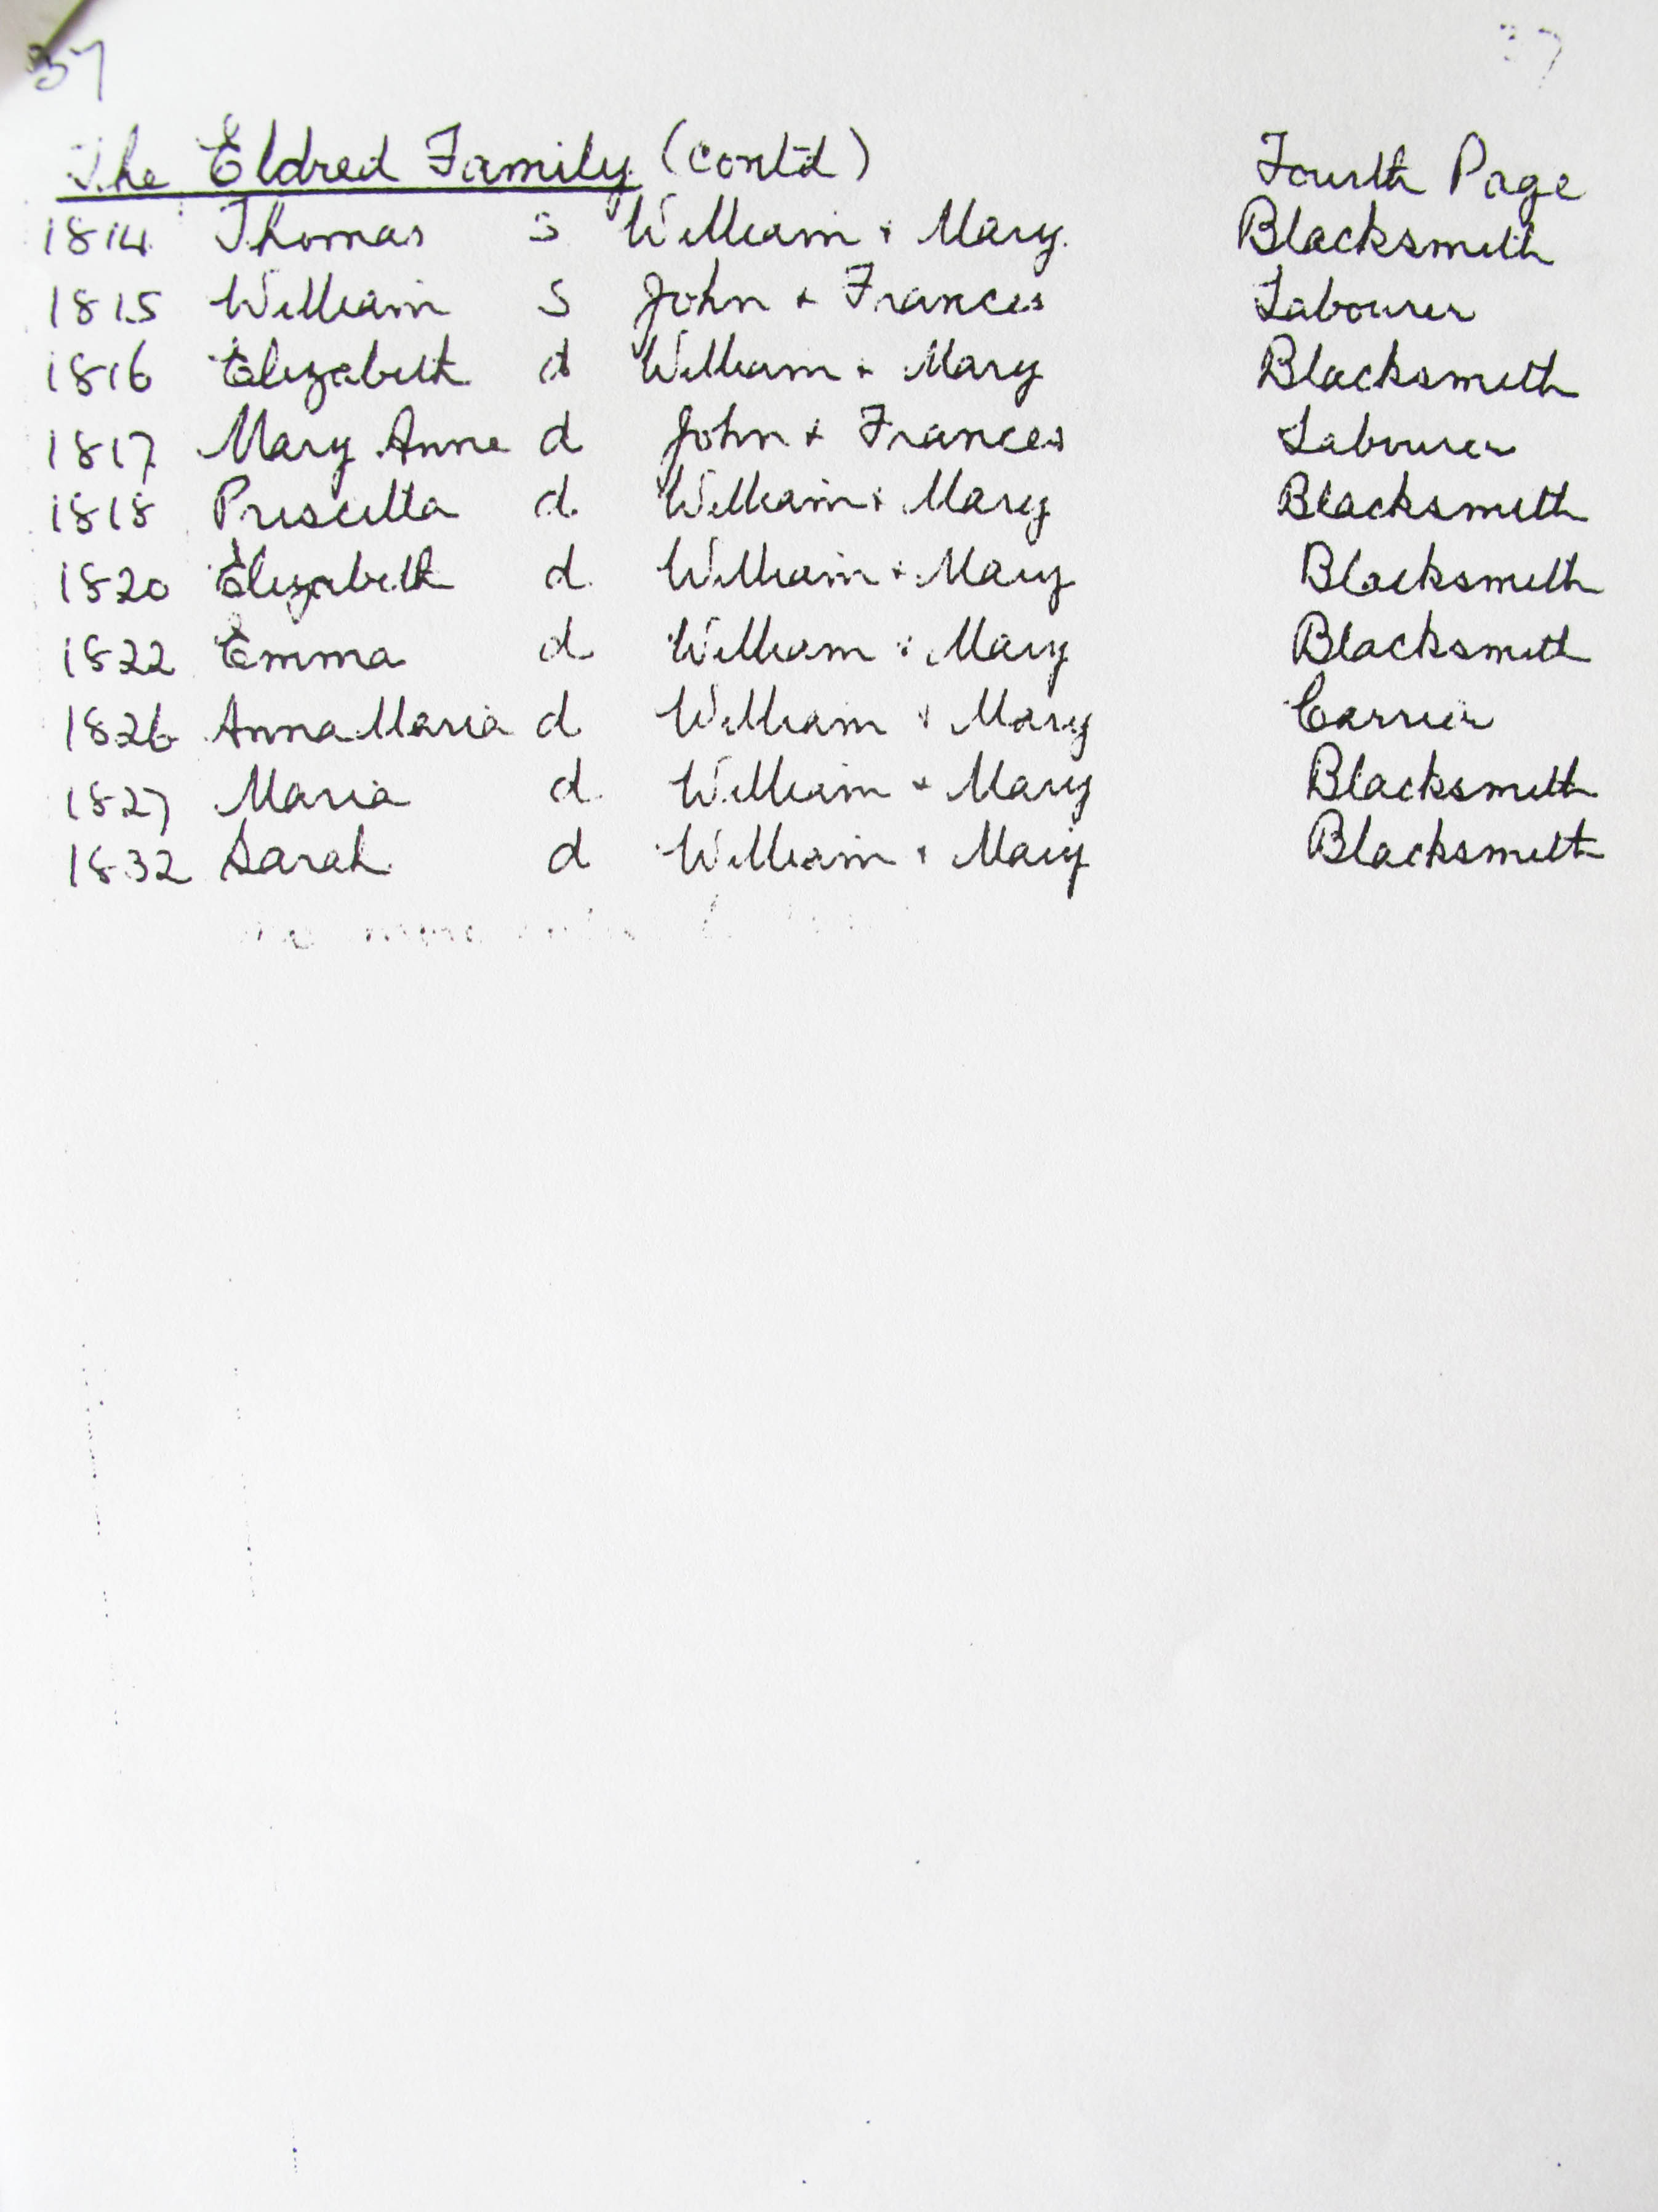 37 37
The Eldred Family (contd) Fourth Page
1814 Thomas S William & Mary Blacksmith
1815 William S John & Frances Labourer
1816 Elizabeth d William & Mary Blacksmith
1817 Mary Anne d John & Frances Labourer
1818 Priscilla d William & Mary Blacksmith
1820 Elizabeth d William & Mary Blacksmith
1822 Emma d William & Mary Blacksmith
1826 Anna Maria d William & Mary Carrier
1827 Maria d William & Mary Blacksmith
1832 Sarah d William & Mary Blacksmith
no more